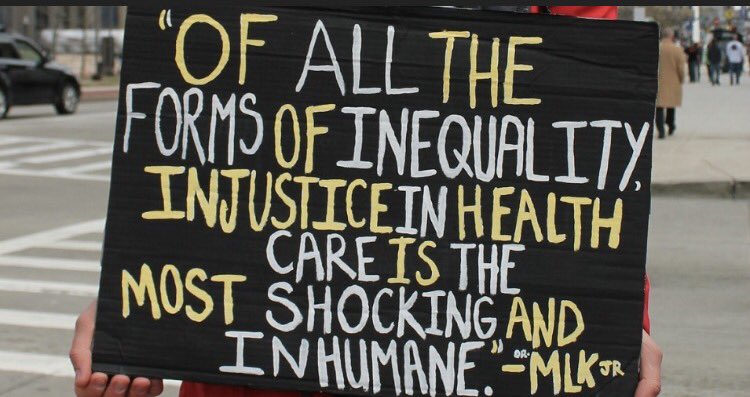 "OF ALL THE
FORMS OF INEQUALITY,
INJUSTICE IN HEALTH
CARE IS THE
MOST SHOCKING AND
INHUMANE." -DR. MLK JR